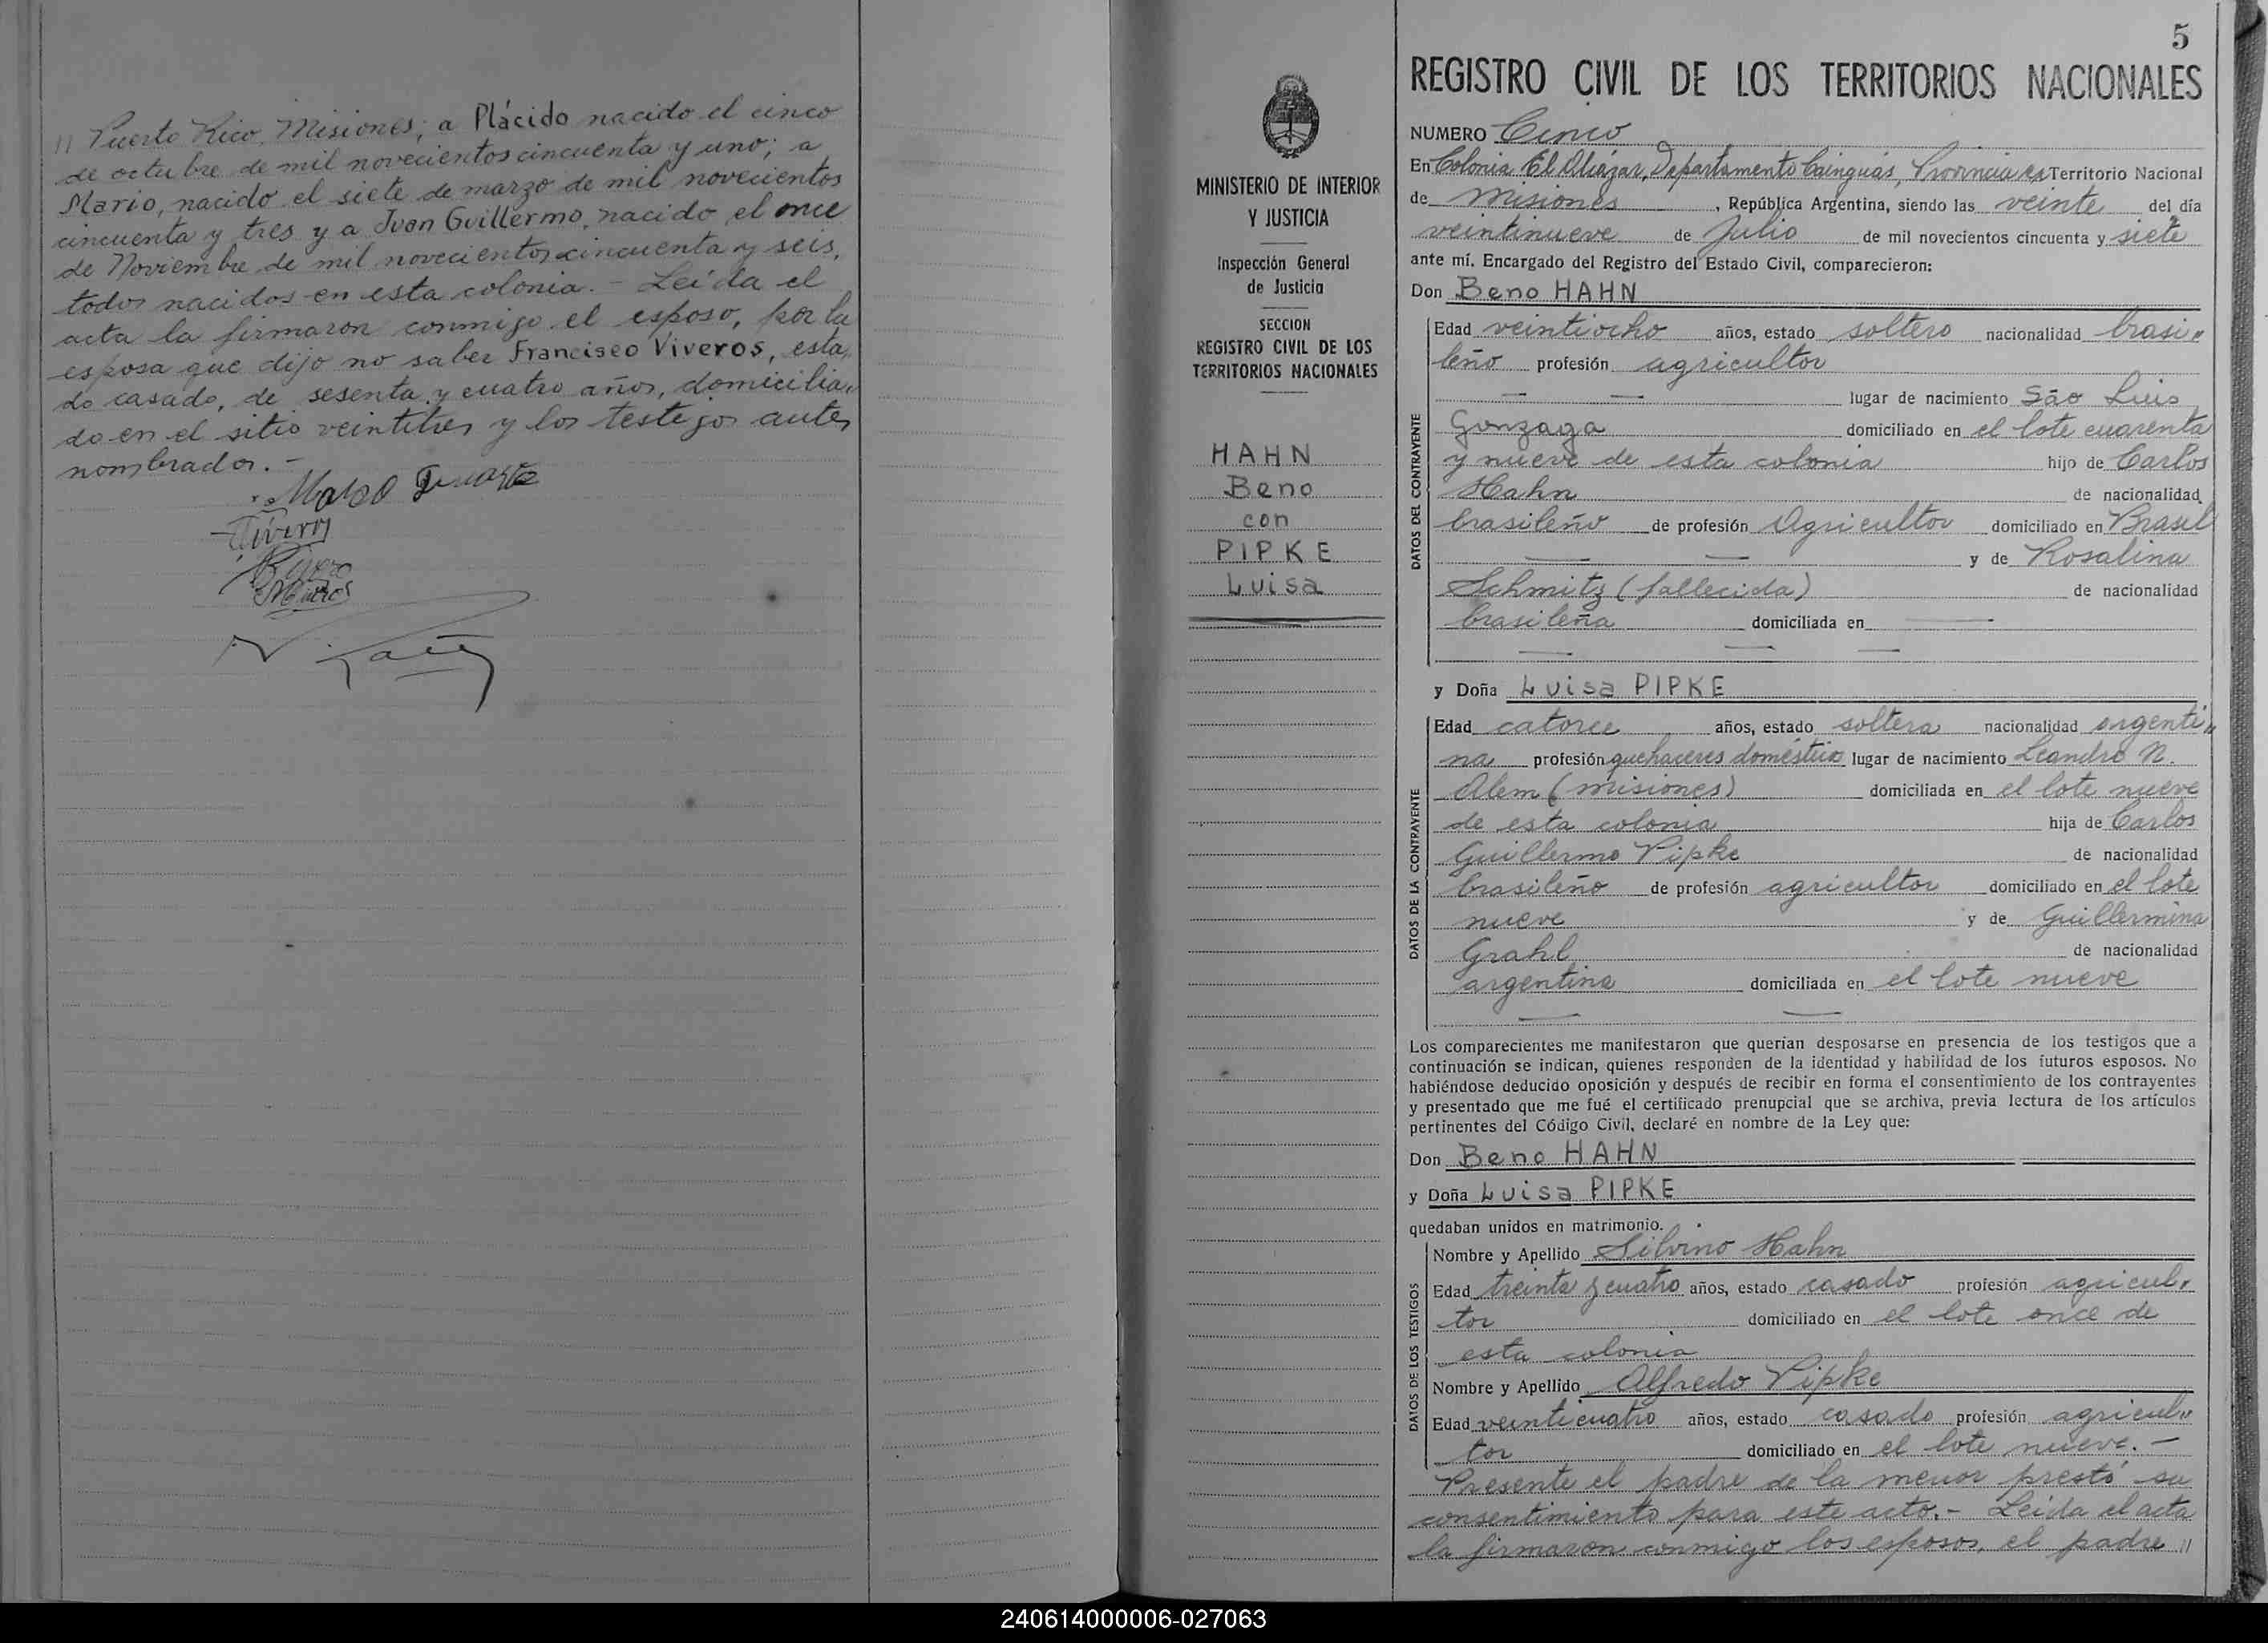 // Puerto Rico, Misiones; a Plácido nacido el cinco
de octubre de mil novecientos cincuenta y uno; a
Mario, nacido el siete de marzo de mil novecientos
cincuenta y tres y a Juan Guillermo, nacido el once
de Noviembre de mil novecientos cincuenta y seis,
todos nacidos en esta colonia. - Leída el
acta la firmaron conmigo el esposo, por la
esposa que dijo no saber Francisco Viveros, esta
do casado, de sesenta y cuatro años, domicilia
do en el sitio veintitres y los testigos antes
nombrados. -
Viveros
5
REGISTRO CIVIL DE LOS TERRITORIOS NACIONALES
NUMERO Cinco
En Colonia El Alcázar, Departamento Cainguás, Provincia Territorio Nacional
de Misiones, República Argentina, siendo las veinte del día
veintinueve de Julio de mil novecientos cincuenta y siete
ante mí. Encargado del Registro del Estado Civil, comparecieron:
Don Beno HAHN
Edad veintiocho años, estado soltero nacionalidad brasi"
leño profesión agricultor
lugar de nacimiento São Luis
Gonzaga domiciliado en el lote cuarenta
y nueve de esta colonia hijo de Carlos
Hahn de nacionalidad
brasileño de profesión Agricultor domiciliado en Brasil
y de Rosalina
Schmitz (fallecida) de nacionalidad
brasileña domiciliada en
y Doña Luisa PIPKE
Edad catorce años, estado soltera nacionalidad argenti"
na profesión quehaceres domésticos lugar de nacimiento Leandro N.
Alem (Misiones) domiciliada en el lote nueve
de esta colonia hija de Carlos
Guillermo Pipke de nacionalidad
brasileño de profesión agricultor domiciliado en el lote
nueve y de Guillermina
Grahl de nacionalidad
argentina domiciliada en el lote nueve
Los comparecientes me manifestaron que querían desposarse en presencia de los testigos que a
continuación se indican, quienes responden de la identidad y habilidad de los futuros esposos. No
habiéndose deducido oposición y después de recibir en forma el consentimiento de los contrayentes
y presentado que me fué el certificado prenupcial que se archiva, previa lectura de los artículos
pertinentes del Código Civil, declaré en nombre de la Ley que:
Don Beno HAHN
y Doña Luisa PIPKE
quedaban unidos en matrimonio.
Nombre y Apellido Silvino Hahn
Edad treinta y cuatro años, estado casado profesión agricul"
tor domiciliado en el lote once de
esta colonia
Nombre y Apellido Alfredo Pipke
Edad veinticuatro años, estado casado profesión agricul"
tor domiciliado en el lote nueve. -
Presente el padre de la menor prestó su
consentimiento para este acto. - Leída el acta
la firmaron conmigo los esposos, el padre //
MINISTERIO DE INTERIOR
Y JUSTICIA
Inspección General
de Justicia
SECCION
REGISTRO CIVIL DE LOS
TERRITORIOS NACIONALES
HAHN
Beno
con
PIPKE
Luisa
DATOS DEL CONTRAYENTE
DATOS DE LA CONTRAYENTE
DATOS DE LOS TESTIGOS
240614000006-027063